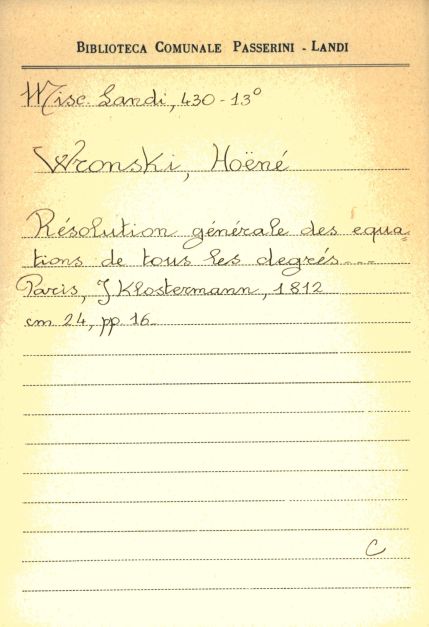 BIBLIOTECA COMUNALE PASSERINI - LANDI
Misc Landi, 430-13°
Wronski, Hoëné
Résolution générale des equa=
tions de tous les degrés....
Paris, J Klostermann, 1812
cm 24, pp. 16.
C